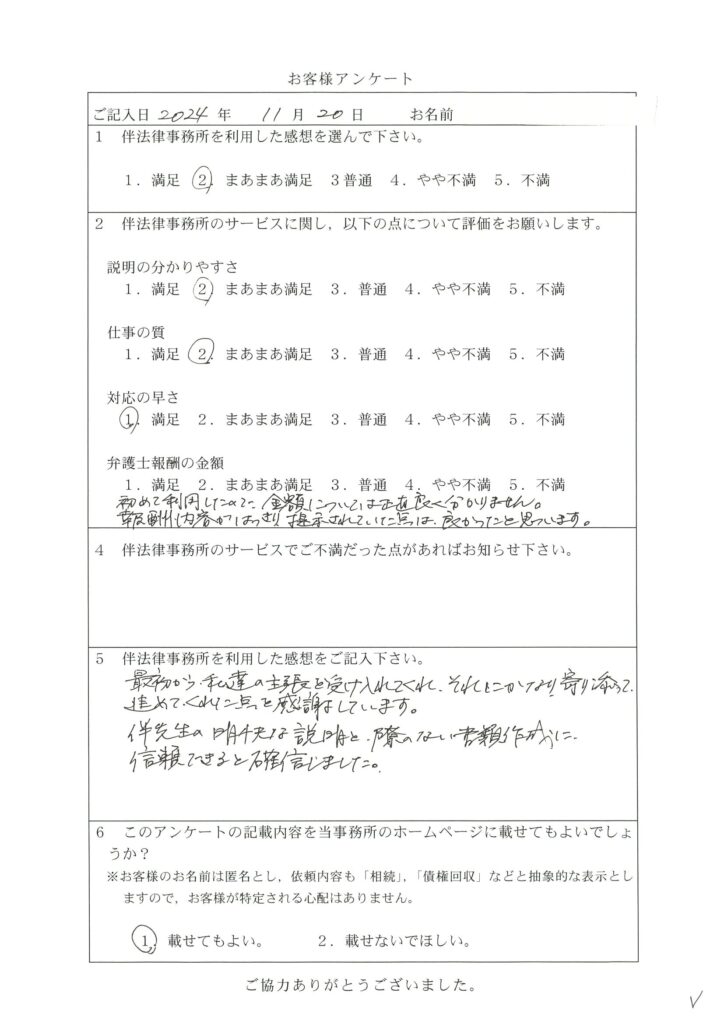 お客様アンケート
ご記入日 2024 年 11 月 20 日 お名前
1 伴法律事務所を利用した感想を選んで下さい。
1．満足 2．まあまあ満足 3 普通 4．やや不満 5．不満
2 伴法律事務所のサービスに関し，以下の点について評価をお願いします。
説明の分かりやすさ
1．満足 2．まあまあ満足 3．普通 4．やや不満 5．不満
仕事の質
1．満足 2．まあまあ満足 3．普通 4．やや不満 5．不満
対応の早さ
1．満足 2．まあまあ満足 3．普通 4．やや不満 5．不満
弁護士報酬の金額
1．満足 2．まあまあ満足 3．普通 4．やや不満 5．不満
初めて利用したので、金額については正直良く分かりません。
報酬内容がはっきり提示されていた点は良かったと思っています。
4 伴法律事務所のサービスでご不満だった点があればお知らせ下さい。
5 伴法律事務所を利用した感想をご記入下さい。
最初から私達の主張を受け入れてくれ、それにかなり寄り添って
進めてくれた点を感謝しています。
伴先生の明快な説明と、隙のない書類作成に
信頼できると確信しました。
6 このアンケートの記載内容を当事務所のホームページに載せてもよいでしょ
うか？
※お客様のお名前は匿名とし，依頼内容も「相続」，「債権回収」などと抽象的な表示とし
ますので，お客様が特定される心配はありません。
1．載せてもよい。 2．載せないでほしい。
ご協力ありがとうございました。